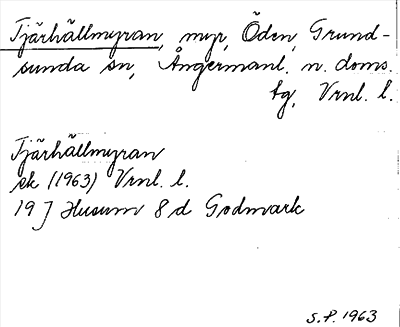 Tjärhällmyran, myr, Öden, Grund-
sunda sn, Ångermanl. n. doms.
tg, Vrnl. l.
Tjärhällmyran
ek (1963) Vrnl. l.
19 J Husum 8 d Godmark
S.P. 1963